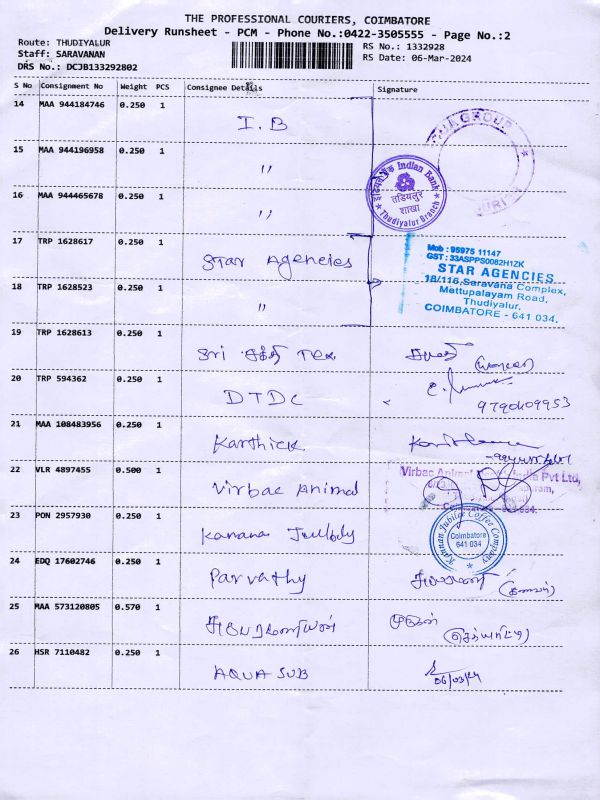 THE PROFESSIONAL COURIERS, COIMBATORE
Delivery Runsheet - PCM - Phone No.:0422-3505555 - Page No.:2
Route: THUDIYALUR
RS No.: 1332928
Staff: SARAVANAN
RS Date: 06-Mar-2024
DRS No.: DCJB133292802
S No Consignment No Weight PCS Consignee Details Signature
14 MAA 944184746 0.250 1
I.B
15 MAA 944196958 0.250 1
"
Indian Bank
तडियलुर
शाखा
Thudiyalur Branch
16 MAA 944465678 0.250 1
"
17 TRP 1628617 0.250 1
Star Agencies
Mob : 95975 11147
GST : 33ASPPS0082H1ZK
STAR AGENCIES
18/116, Saravana Complex,
Mettupalayam Road,
Thudiyalur,
COIMBATORE - 641 034.
18 TRP 1628523 0.250 1
"
19 TRP 1628613 0.250 1
Sri சக்தி Tex
20 TRP 594362 0.250 1
DTDC
9790409953
21 MAA 108483956 0.250 1
Karthick
22 VLR 4897455 0.500 1
Virbac Animal
Virbac Animal India Pvt Ltd,
Coimbatore
23 PON 2957930 0.250 1
Kannan Jubilee Coffee Company
Coimbatore
641 034
24 EDQ 17602746 0.250 1
Parvathy
25 MAA 573120805 0.570 1
சுப்ரமணியன்
முருகன்
26 HSR 7110482 0.250 1
AQUA SUB
06/03/24